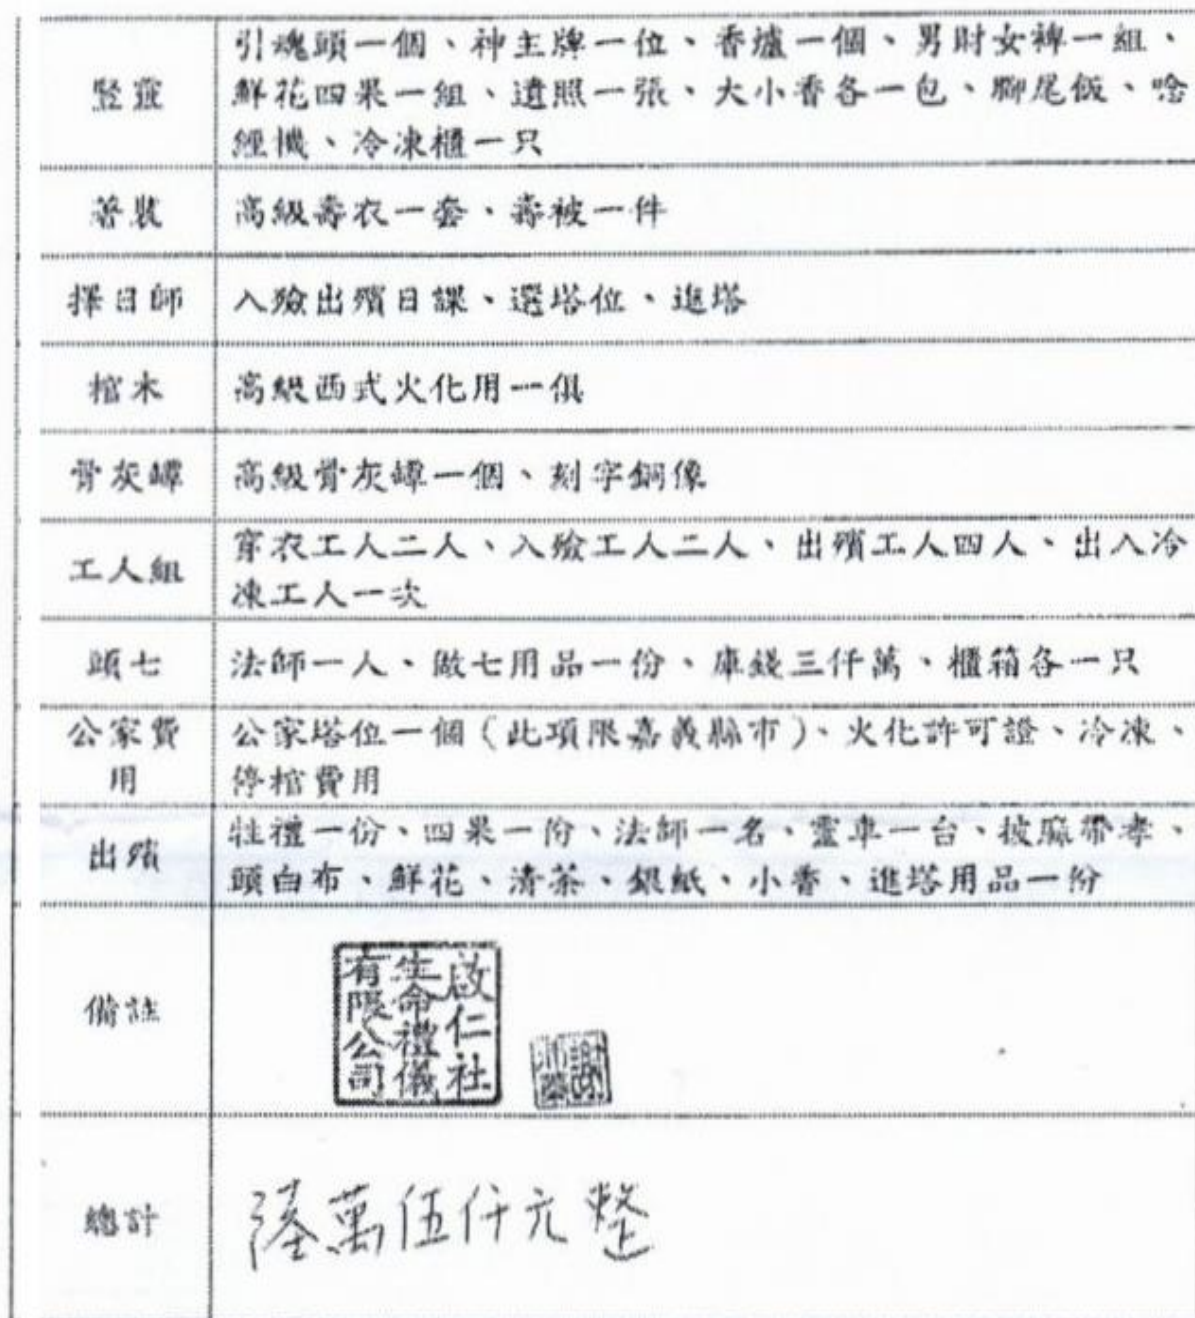 豎靈
引魂頭一個、神主牌一位、香爐一個、男財女裨一組、
鮮花四果一組、遺照一張、大小香各一包、腳尾飯、唸
經機、冷凍櫃一只
著裝
高級壽衣一套、壽被一件
擇日師
入殮出殯日課、選塔位、進塔
棺木
高級西式火化用一俱
骨灰罈
高級骨灰罈一個、刻字銅像
工人組
穿衣工人二人、入殮工人二人、出殯工人四人、出入冷
凍工人一次
頭七
法師一人、做七用品一份、庫錢三仟萬、櫃箱各一只
公家費
用
公家塔位一個(此項限嘉義縣市)、火化許可證、冷凍、
停棺費用
出殯
牲禮一份、四果一份、法師一名、靈車一台、披麻帶孝、
頭白布、鮮花、清茶、銀紙、小香、進塔用品一份
備註
啟仁社
生命禮儀
有限公司
謝
總計
陸萬伍仟元整